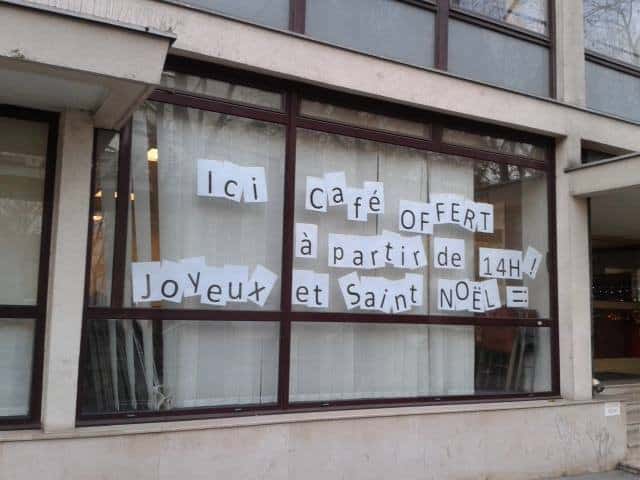 Ici Café OFFERT
à partir de 14H!
Joyeux et Saint NOËL !!!